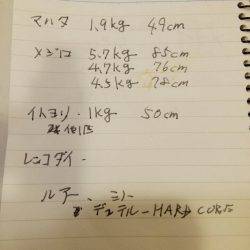 マハタ 1.9kg 49cm
メジロ 5.7kg 85cm
4.7kg 76cm
4.5kg 78cm
イトヨリ 1kg 50cm
他1匹
レンコダイ
ルアー
デュエル HARD CORE